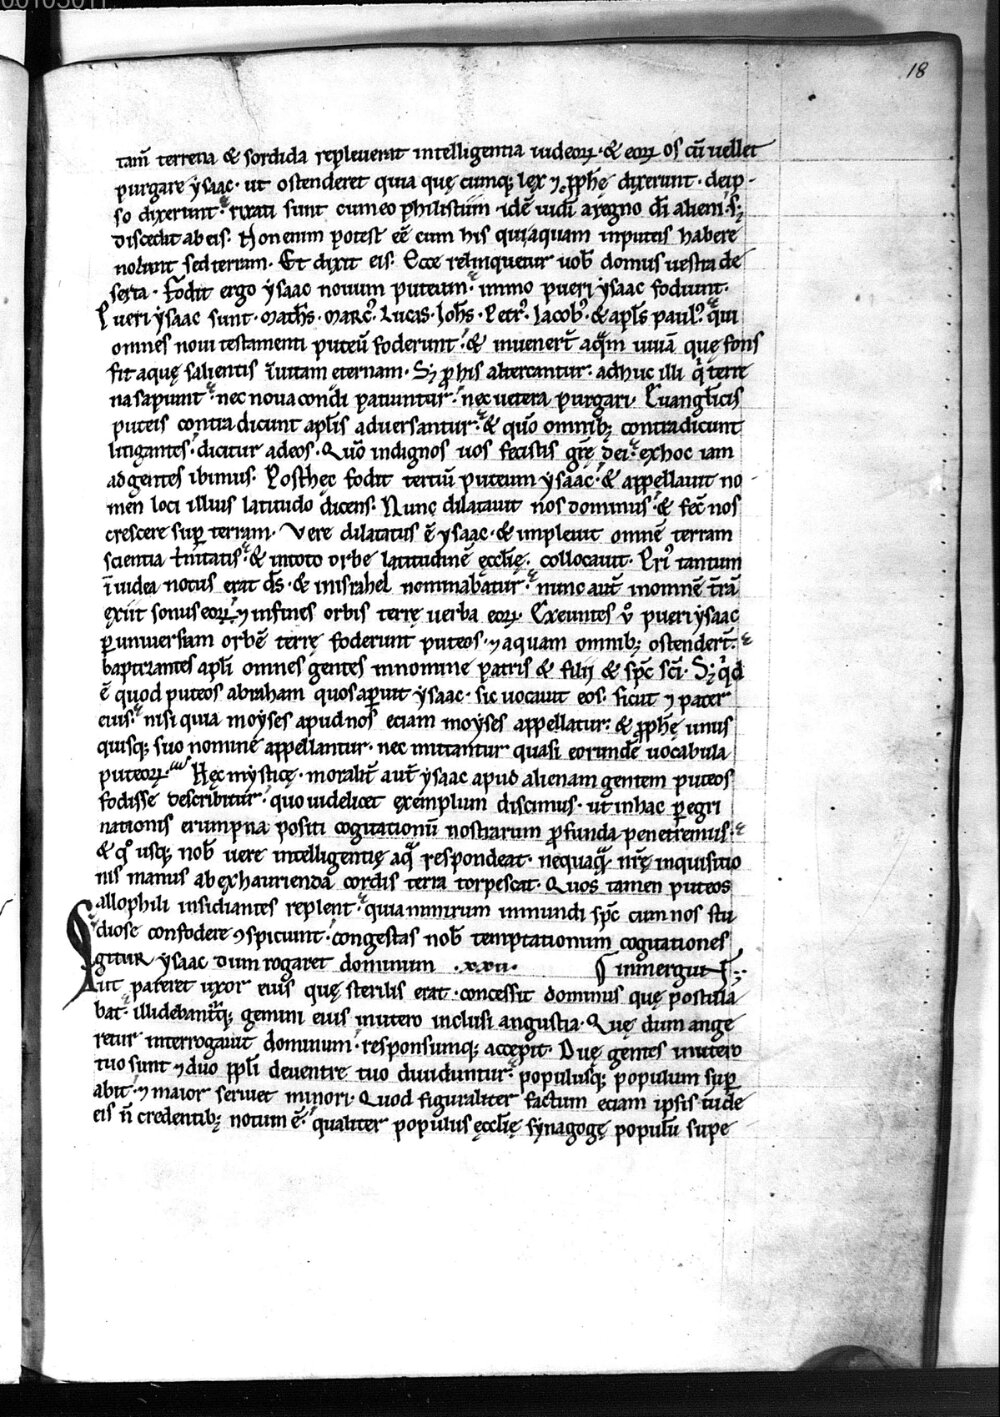 18
tam̄ terrena & sordida repleuerat intelligentia iudeoꝝ · & eoꝝ os cū uellet
purgare ysaac · ut ostenderet quia quę cumq; lex ⁊ ꝓphę dixerunt · de ip-
so dixerunt · rixati sunt cum eo philistiim · idē uidi a regno dī alieni · sꝫ
discedit ab eis · Non enim potest eē cum his qui aquam in puteis habere
nolunt sed terram · Et dixit eis · Ecce relinquetur uob̄ domus uestra de
serta · Fodit ergo ysaac nouum puteum · immo pueri ysaac fodiunt ·
Pueri ysaac sunt · Math̄s · Marc᷒ · Lucas · Ioh̄s · Petr᷒ · Iacob᷒ · & apl̄s paul᷒ · qui
omnes noui testamenti puteū foderunt · & inuener̄t aq̄m uiuā quę fons
fit aquę salientis ī uitam eternam · Sꝫ ꝓ his altercantur · adhuc illi q̇ terre
na sapiunt · nec noua condi patiuntur · nec uetera purgari · Euangl̄icis
puteis contra dicunt apl̄is aduersantur · & quō omnibꝫ contradicunt
litigantes · dicitur ad eos · Quō indignos uos fecistis grę̄ dei · ex hoc iam
ad gentes ibimus · Post hęc fodit tertiū puteum ysaac · & appellauit no-
men loci illius latitudo dicens · Nunc dilatauit nos dominus · & fec̄ nos
crescere suꝑ terram · Vere dilatatus ē ysaac · & impleuit omnē terram
scientia t̄nitatis · & in toto orbe latitudinē ęccl̄ię collocauit · Pri᷒ tantum
ī iudea notus erat d̄s · & in israhel nominabatur · nunc aut̄ in omnē t̄rā
exiit sonus eoꝝ · ⁊ in fines orbis terrę uerba eoꝝ · Exeuntes ū pueri ysaac
ꝑ uniuersum orbē terrę foderunt puteos · ⁊ aquam omnibꝫ ostender̄t ·
baptizantes apl̄i omnes gentes in nomine patris & filii & sp̄c sc̄i · Sꝫ q̇d
ē quod puteos abraham quos aꝑuit ysaac · sic uocauit eos · sicut ⁊ pater
eius · nisi quia moyses apud nos eciam moyses appellatur · & ꝓphę unus
quisq; suo nomine appellantur · nec mutantur quasi eorundē uocabula
puteoꝝ · Hęc mysticę · moralit̄ aut̄ ysaac apud alienam gentem puteos
fodisse describitur · quo uidelicet exemplum discimus · ut in hac ꝑegri
nationis erumpna positi cogitationū nostrarum ꝓfunda penetremus ·
& q° usq; nob̄ uere intelligentię aq̄ respondeat · nequaq̄ nr̄ę inquisitio
nis manus ab exhaurienda cordis terra torpescat · Quos tamen puteos
allophili insidiantes replent · quia nimirum inmundi sp̄c cum nos stu
diose confodere ꝯspiciunt · congestas nob̄ temptationum cogitationes
Igitur ysaac dum rogaret dominum · xxii · inmergunt ·
ut pareret uxor eius quę sterilis erat · concessit dominus quę postula
bat · illidebantq; gemini eius in utero inclusi angustia · Quę dum ange
retur interrogauit dominum · responsumq; accepit · Duę gentes in utero
tuo sunt ⁊ duo ppl̄i de uentre tuo diuiduntur · populusq; populum suꝑ
abit · ⁊ maior seruiet minori · Quod figuraliter factum eciam ipsis iude
eis n̄ credentibꝫ notum ē · qualiter populus ęccl̄ię synagogę populū supe